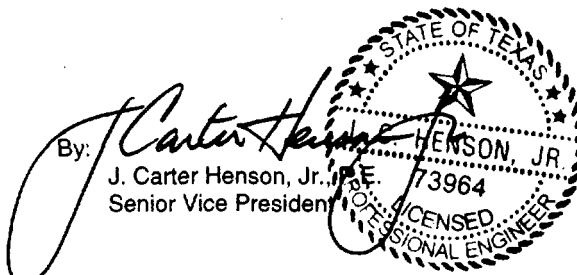 By: J Carter Henson Jr
J. Carter Henson, Jr., P.E.
Senior Vice President
STATE OF TEXAS
J. C. HENSON, JR.
73964
LICENSED
PROFESSIONAL ENGINEER